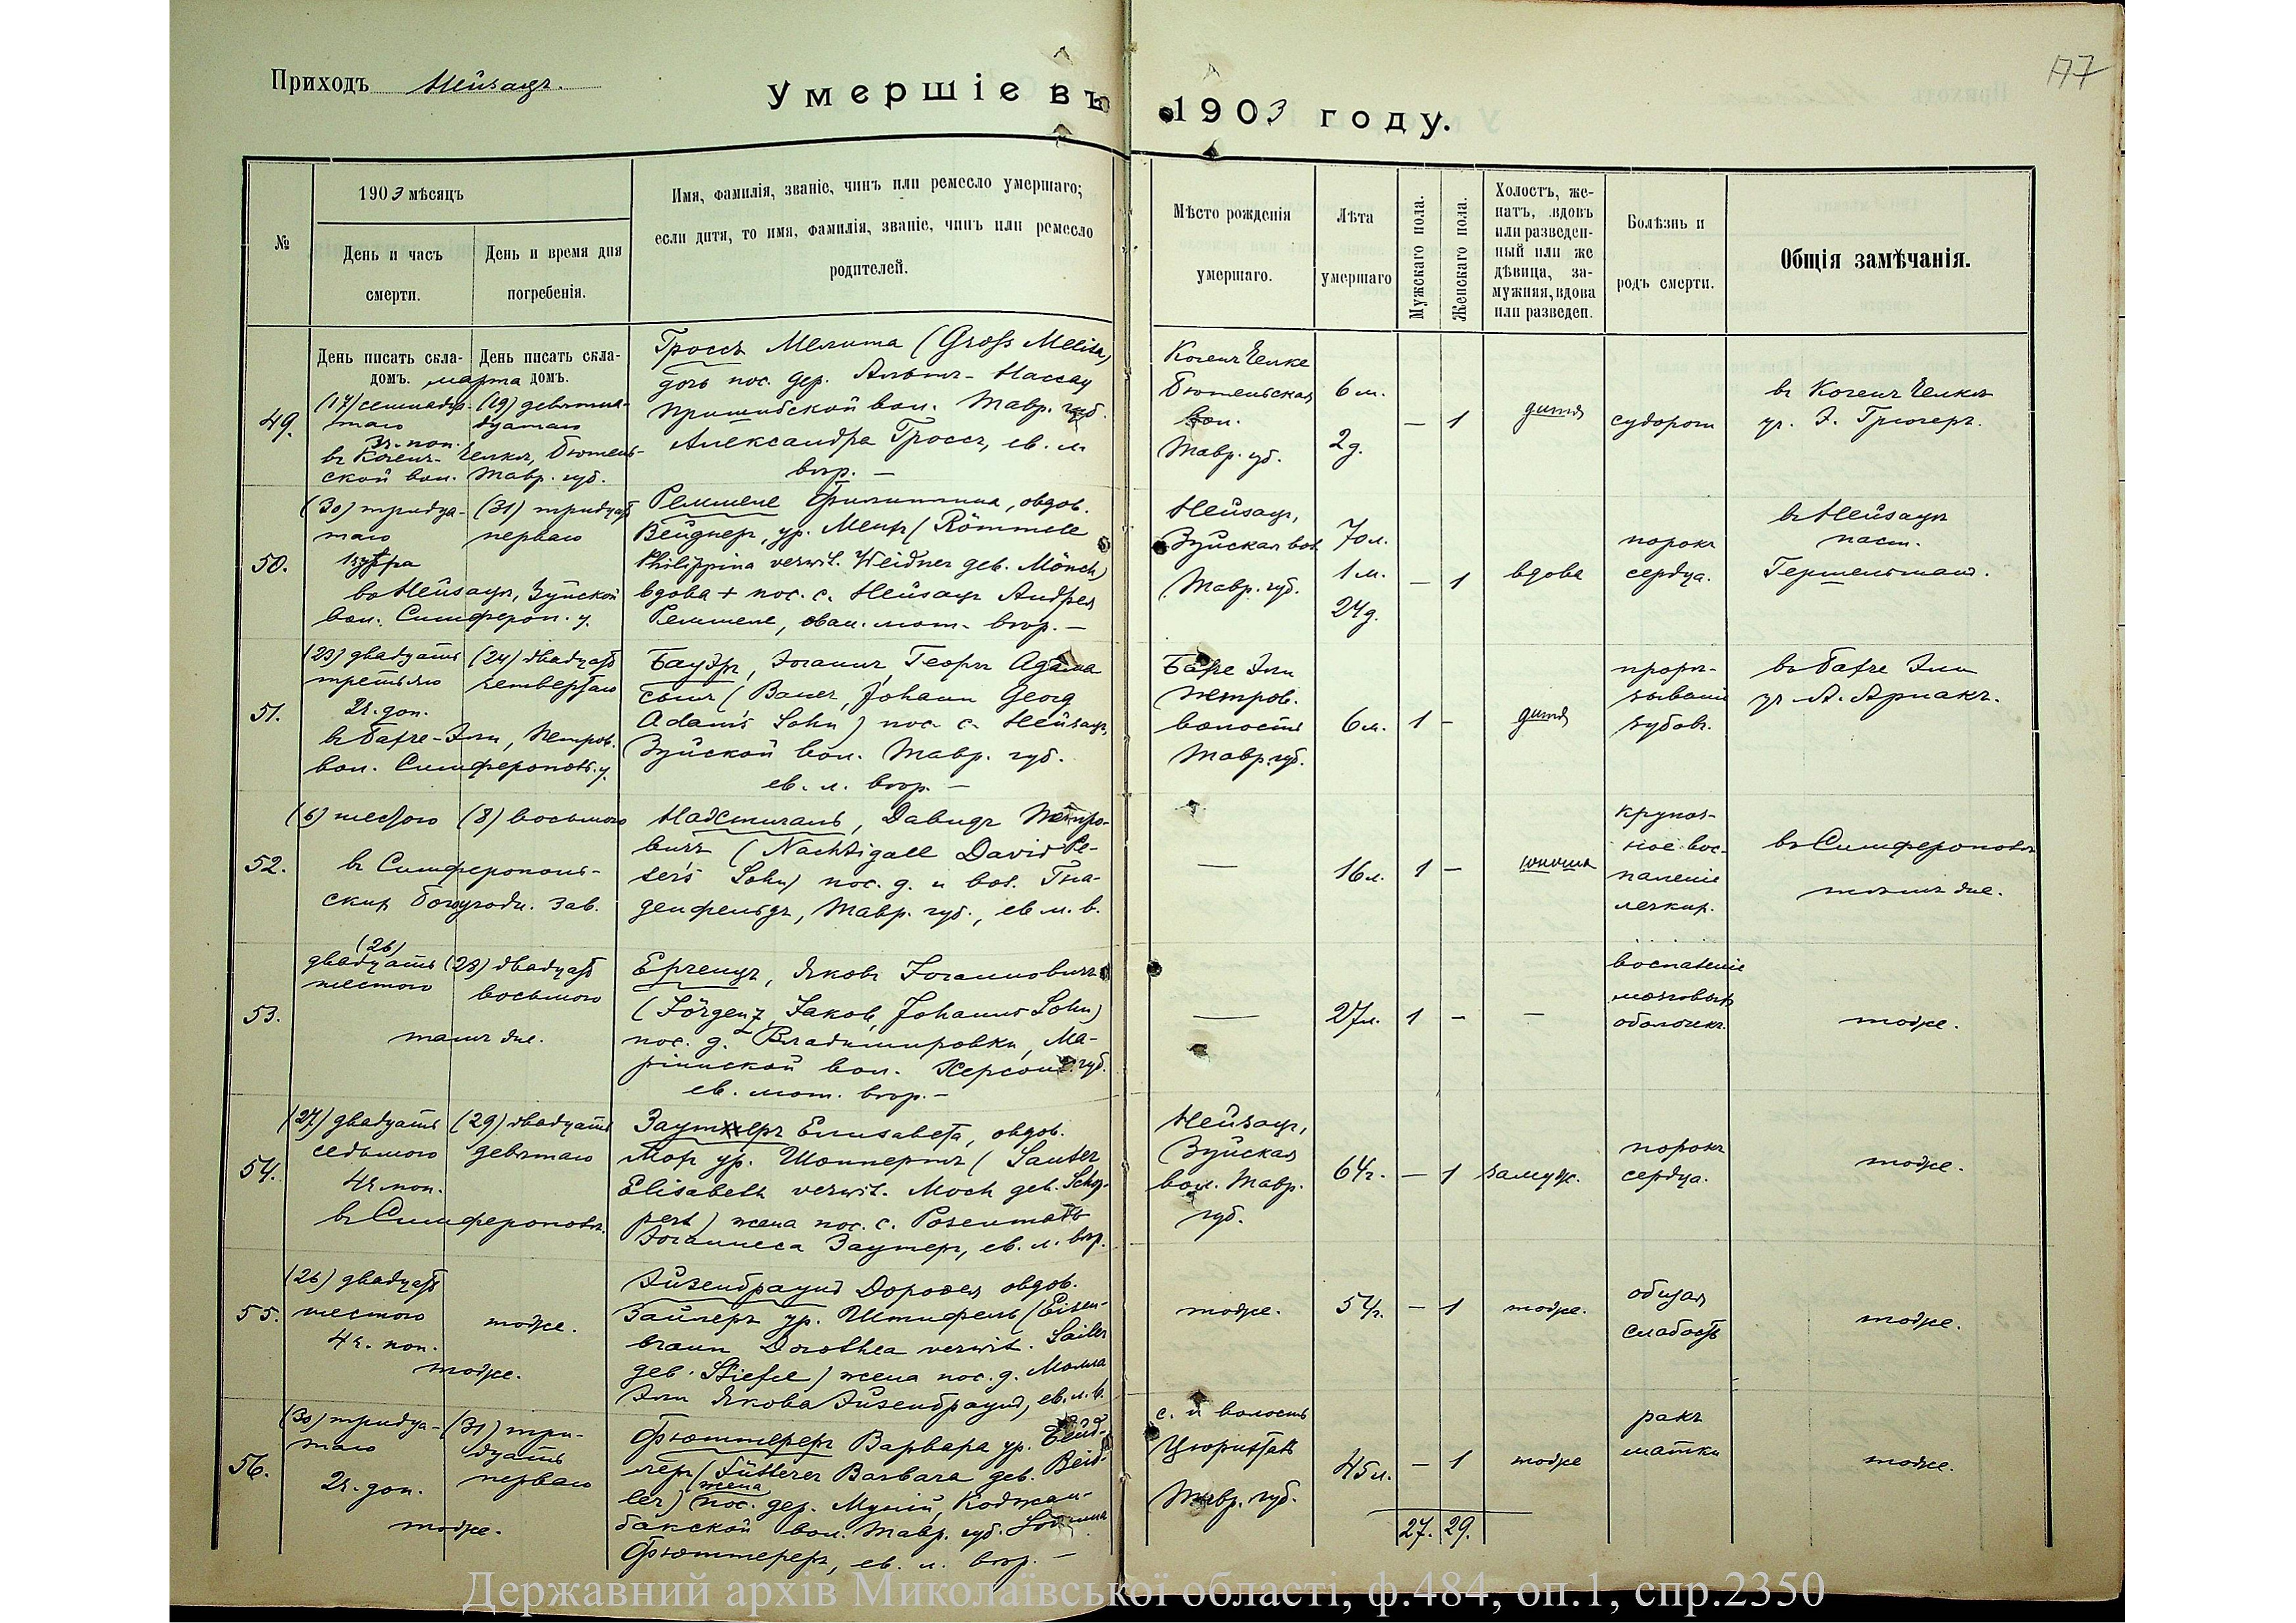 Приходъ Нейзацъ.
177
Умершіе въ 1903 году.
№
1903 мѣсяцъ
День и часъ
смерти.
День и время дня
погребенія.
Имя, фамилія, званіе, чинъ или ремесло умершаго;
если дитя, то имя, фамилія, званіе, чинъ или ремесло
родителей.
Мѣсто рожденія
умершаго.
Лѣта
умершаго
Мужскаго пола.
Женскаго пола.
Холостъ, же-
натъ, вдовъ
или разведен-
ный или же
дѣвица, за-
мужняя, вдова
или разведен.
Болѣзнь и
родъ смерти.
Общія замѣчанія.
День писать скла-
домъ.
День писать скла-
домъ.
марта
49.
(17) семнадца-
таго
(19) девятна-
дцатаго
ской вол. Тавр. губ.
Гроссъ Мелита (Gross Melita)
дочь пос. дер. Альтъ-Нассау
Пришибской вол. Тавр. губ.
Александра Гроссъ, ев. л.
вѣр. —
Бютеньская
вол.
Тавр. губ.
6 м.
2 д.
— 1
дитя
судороги
50.
(30) тридца-
таго
(31) тридцать
перваго
въ Нейзацъ, Зуйской
вол. Симфероп. у.
Реммеле Филиппина, овдов.
Вейднеръ, ур. Менхъ (Römmele
Philippina verwit. Weidner geb. Mönch)
вдова + пос. с. Нейзацъ Андрея
Реммеле, еван. лют. вѣр. —
Нейзацъ,
Зуйская вол.
Тавр. губ.
70 л.
1 м.
24 д.
— 1
вдова
порокъ
сердца.
въ Нейзацѣ
паст.
51.
(23) двадцать
третьяго
(24) двадцать
четвертаго
2 ч. поп.
вол. Симферополь. у.
Бауэръ, Іоганнъ Георгъ Адама
сынъ (Bauer, Johann Georg
Adam's Sohn) пос. с. Нейзацъ,
Зуйской вол. Тавр. губ.
ев. л. вѣр. —
Петров.
волость
Тавр. губ.
6 м.
1 —
дитя
прорѣ-
зываніе
зубовъ.
52.
(6) шестого
(8) восьмого
въ Симферополь-
ских богоугодн. зав.
Нахтигаль, Давидъ Петро-
вичъ (Nachtigall David Pe-
ters Sohn) пос. д. и вол. Гна-
денфельдъ, Тавр. губ., ев. л. в.
—
16 л.
1 —
юноша
крупоз-
ное вос-
паленіе
легких.
въ Симферополѣ
53.
(26)
двадцать
шестого
(28) двадцать
восьмого
тамъ же.
Ергенцъ, Яковъ Іоганновичъ
(Jörgenz, Jakob, Johanns Sohn)
пос. д. Владимировки, Ма-
ріинской вол. Херсон. губ.
ев. лют. вѣр. —
—
27 л.
1 —
—
воспаленіе
мозговыхъ
оболочекъ.
тоже.
54.
(27) двадцать
седьмого
(29) двадцать
девятаго
4 ч. поп.
въ Симферополѣ.
Заутеръ Елизавета, овдов.
Мохъ ур. Шоппертъ (Sauter
Elisabeth verwit. Moch geb. Schop-
pert) жена пос. с. Розенталь
Іоганнеса Заутеръ, ев. л. вѣр.
Нейзацъ,
Зуйская
вол. Тавр.
губ.
64 г.
— 1
замуж.
порокъ
сердца.
тоже.
55.
(26) двадцать
шестого
4 ч. поп.
тоже.
тоже.
Эйзенбраунъ Доротея овдов.
Зайлеръ ур. Штифель (Eisen-
braun Dorothea verwit. Sailer
geb. Stiefel) жена пос. д. Молла
Эли Якова Эйзенбраунъ, ев. л. в.
тоже.
54 г.
— 1
тоже.
общая
слабость
тоже.
56.
(30) тридца-
таго
(31) три-
дцать
перваго
тоже.
Фюттереръ Варвара ур. Бейд-
леръ (Fütterer Barbara geb. Beid-
ler) жена пос. дер.
бакской вол. Тавр. губ.
Фюттереръ, ев. л. вѣр. —
с. и волость
Цюрихталь
Тавр. губ.
45 л.
— 1
тоже
ракъ
матки
тоже.
27. 29.
Державний архів Миколаївської області, ф.484, оп.1, спр.2350